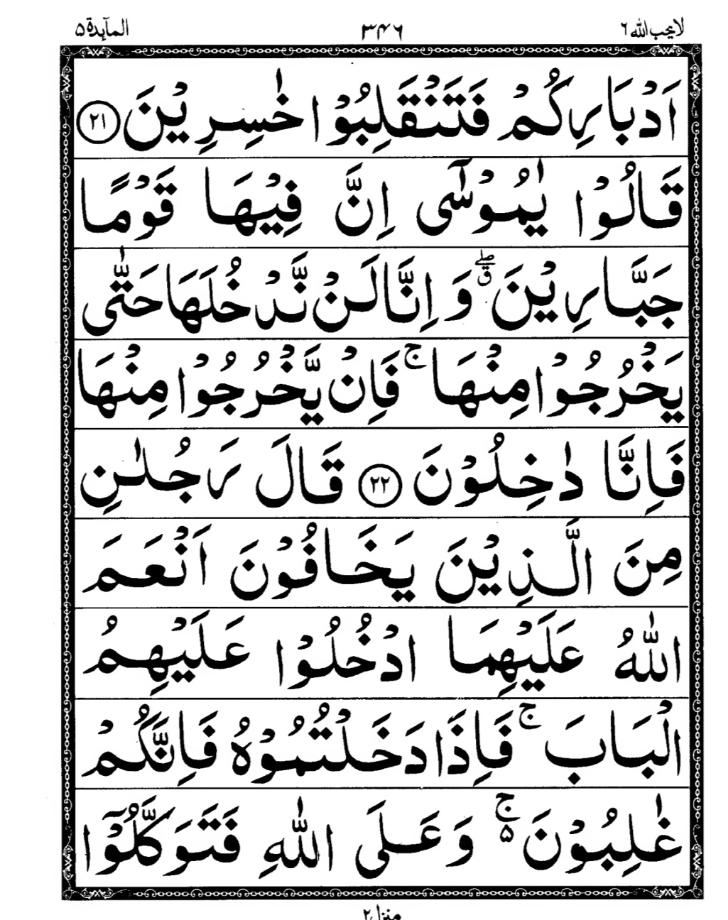 لا يحب الله ٦ ٣٤٦ المآىدة ٥
اَدْبَارِكُمْ فَتَنْقَلِبُوْا خٰسِرِيْنَ ﴿٢١﴾
قَالُوْا يٰمُوْسٰۤى اِنَّ فِيْهَا قَوْمًا
جَبَّارِيْنَ ۖۗ وَ اِنَّا لَنْ نَّدْخُلَهَا حَتّٰى
يَخْرُجُوْا مِنْهَا ۚ فَاِنْ يَّخْرُجُوْا مِنْهَا
فَاِنَّا دٰخِلُوْنَ ﴿٢٢﴾ قَالَ رَجُلٰنِ
مِنَ الَّذِيْنَ يَخَافُوْنَ اَنْعَمَ
اللّٰهُ عَلَيْهِمَا ادْخُلُوْا عَلَيْهِمُ
الْبَابَ ۚ فَاِذَا دَخَلْتُمُوْهُ فَاِنَّكُمْ
غٰلِبُوْنَ ۚ۬ وَ عَلَى اللّٰهِ فَتَوَكَّلُوْۤا
منزل ٢